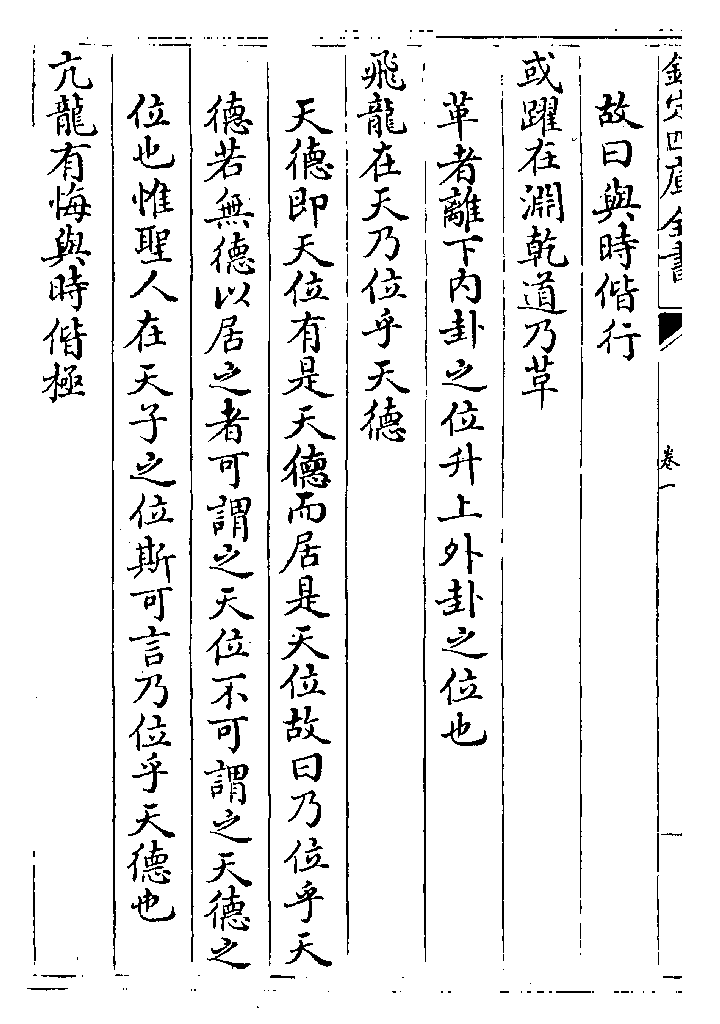 欽定四庫全書
卷一
故曰與時偕行
或躍在淵乾道乃革
革者離下内卦之位升上外卦之位也
飛龍在天乃位乎天德
天德即天位有是天德而居是天位故曰乃位乎天
德若無德以居之者可謂之天位不可謂之天德之
位也惟聖人在天子之位斯可言乃位乎天德也
亢龍有悔與時偕極